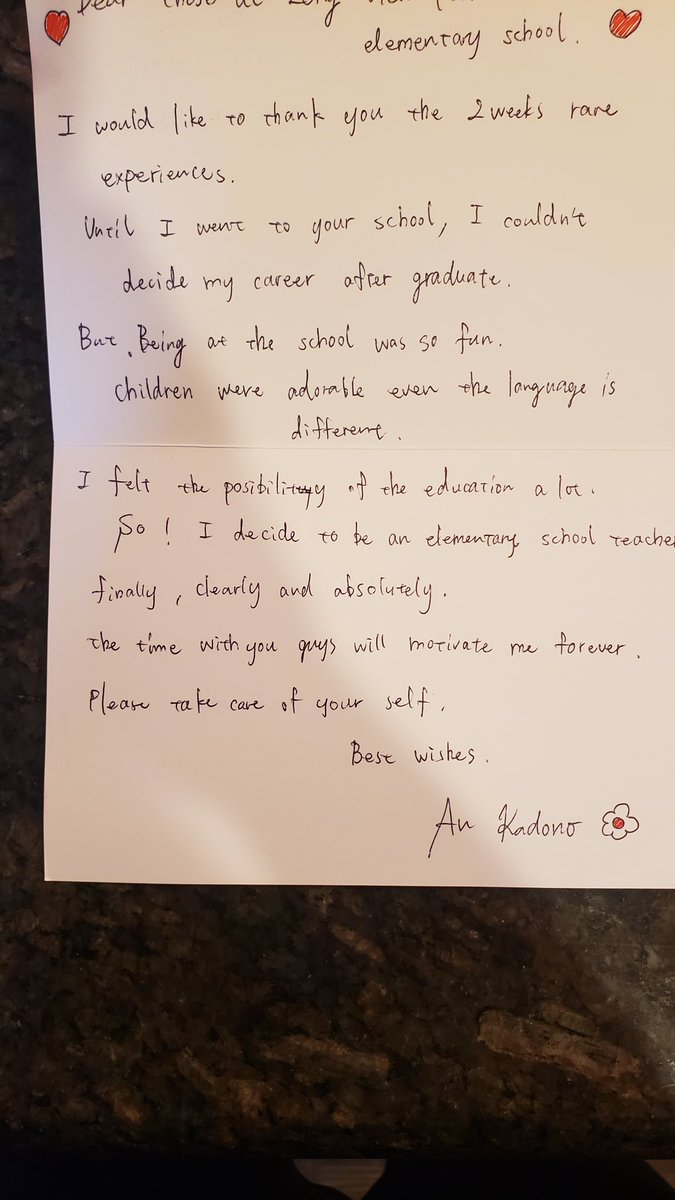 Dear those at Long
elementary school.
I would like to thank you the 2 weeks rare
experiences.
Until I went to your school, I couldn't
decide my career after graduate.
But, Being at the school was so fun.
Children were adorable even the language is
different.
I felt the posibility of the education a lot.
So! I decide to be an elementary school teache
finally, clearly and absolutely.
the time with you guys will motivate me forever.
Please take care of your self.
Best wishes.
An Kadono